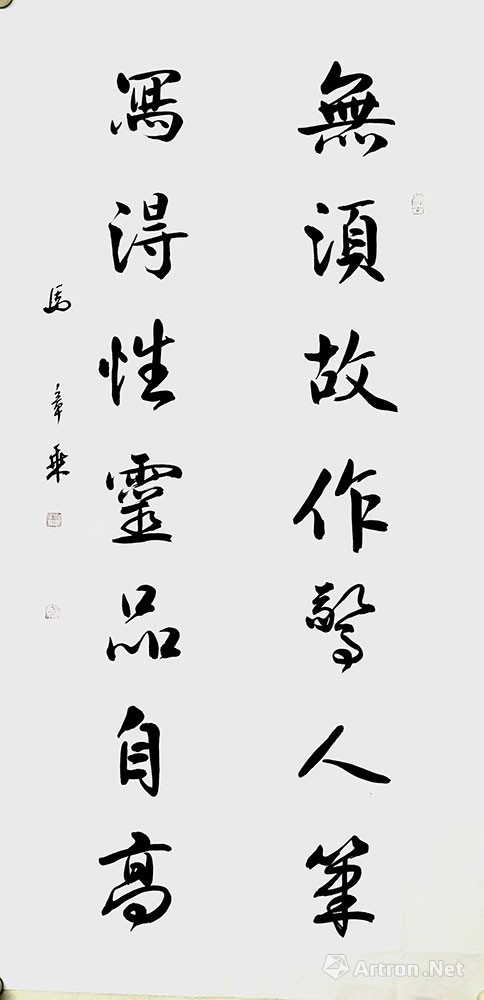 無須故作驚人筆
寫得性靈品自高
馬章乘
Artron.Net